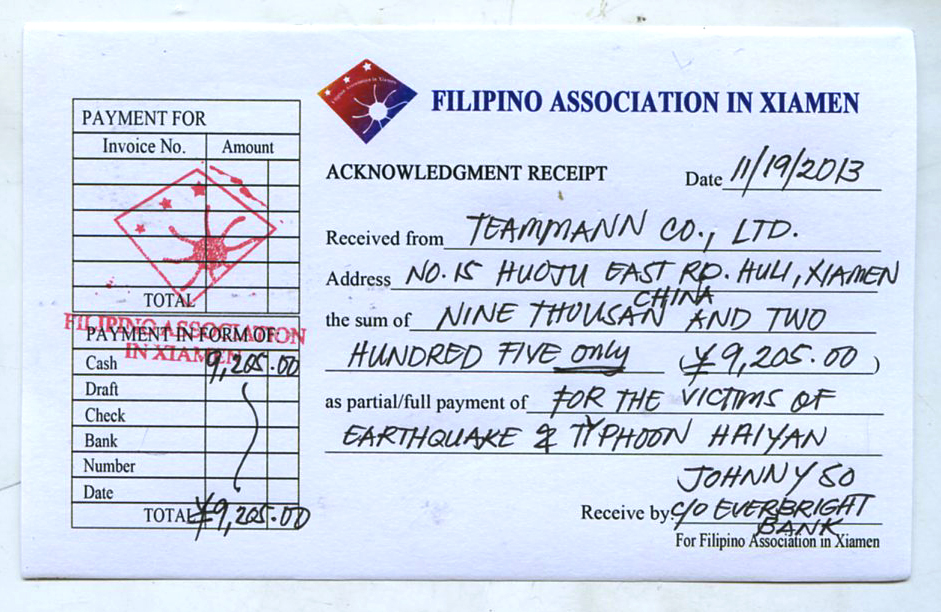 Filipino Association in Xiamen
FILIPINO ASSOCIATION IN XIAMEN
PAYMENT FOR
Invoice No. Amount
TOTAL
FILIPINO ASSOCIATION
IN XIAMEN
PAYMENT IN FORM OF
Cash 9,205.00
Draft
Check
Bank
Number
Date
TOTAL ¥9,205.00
ACKNOWLEDGMENT RECEIPT
Date 11/19/2013
Received from TEAMMANN CO., LTD.
Address NO. 15 HUOJU EAST RD. HULI, XIAMEN
CHINA
the sum of NINE THOUSAN AND TWO
HUNDRED FIVE only (¥9,205.00)
as partial/full payment of FOR THE VICTIMS OF
EARTHQUAKE & TYPHOON HAIYAN
JOHNNY SO
Receive by C/O EVERBRIGHT
BANK
For Filipino Association in Xiamen